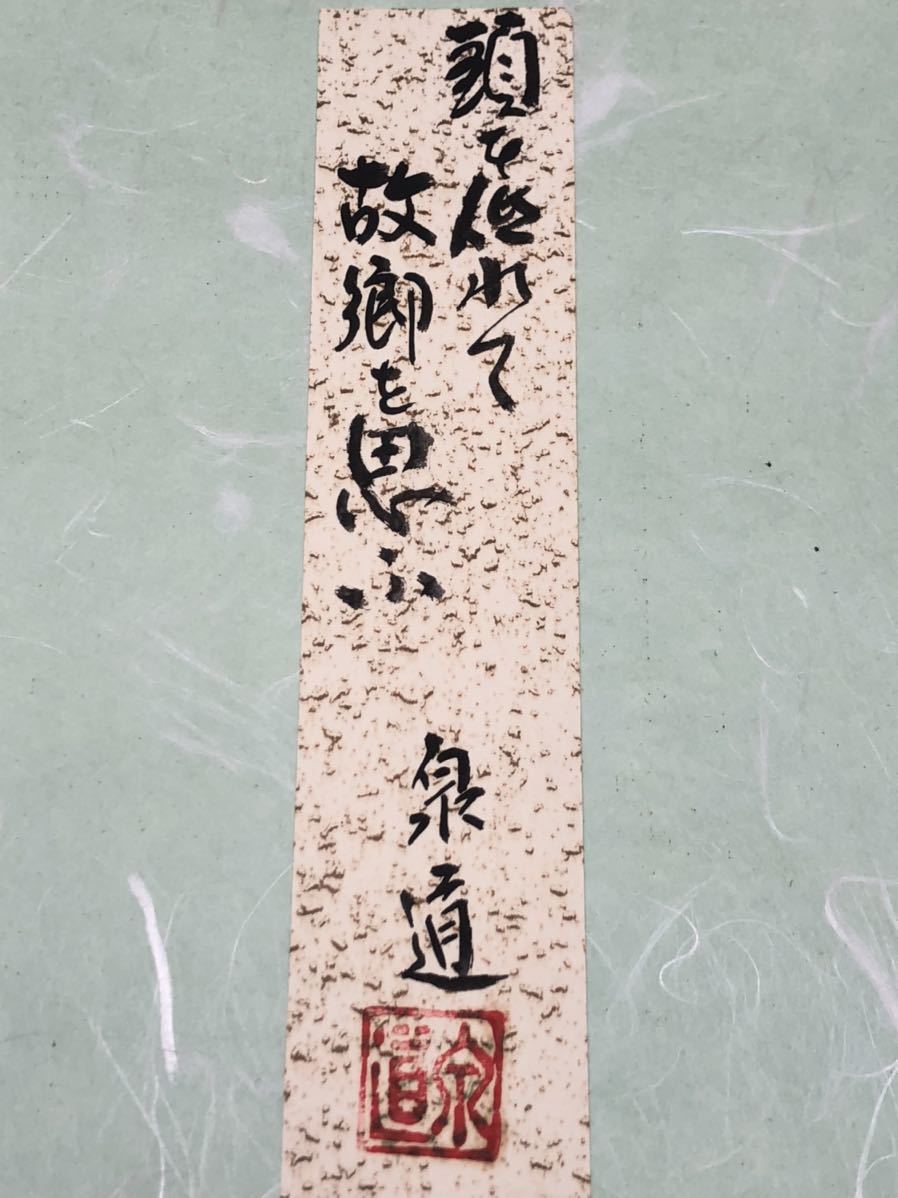 頭を低れて
故郷を思ふ
泉道
泉道